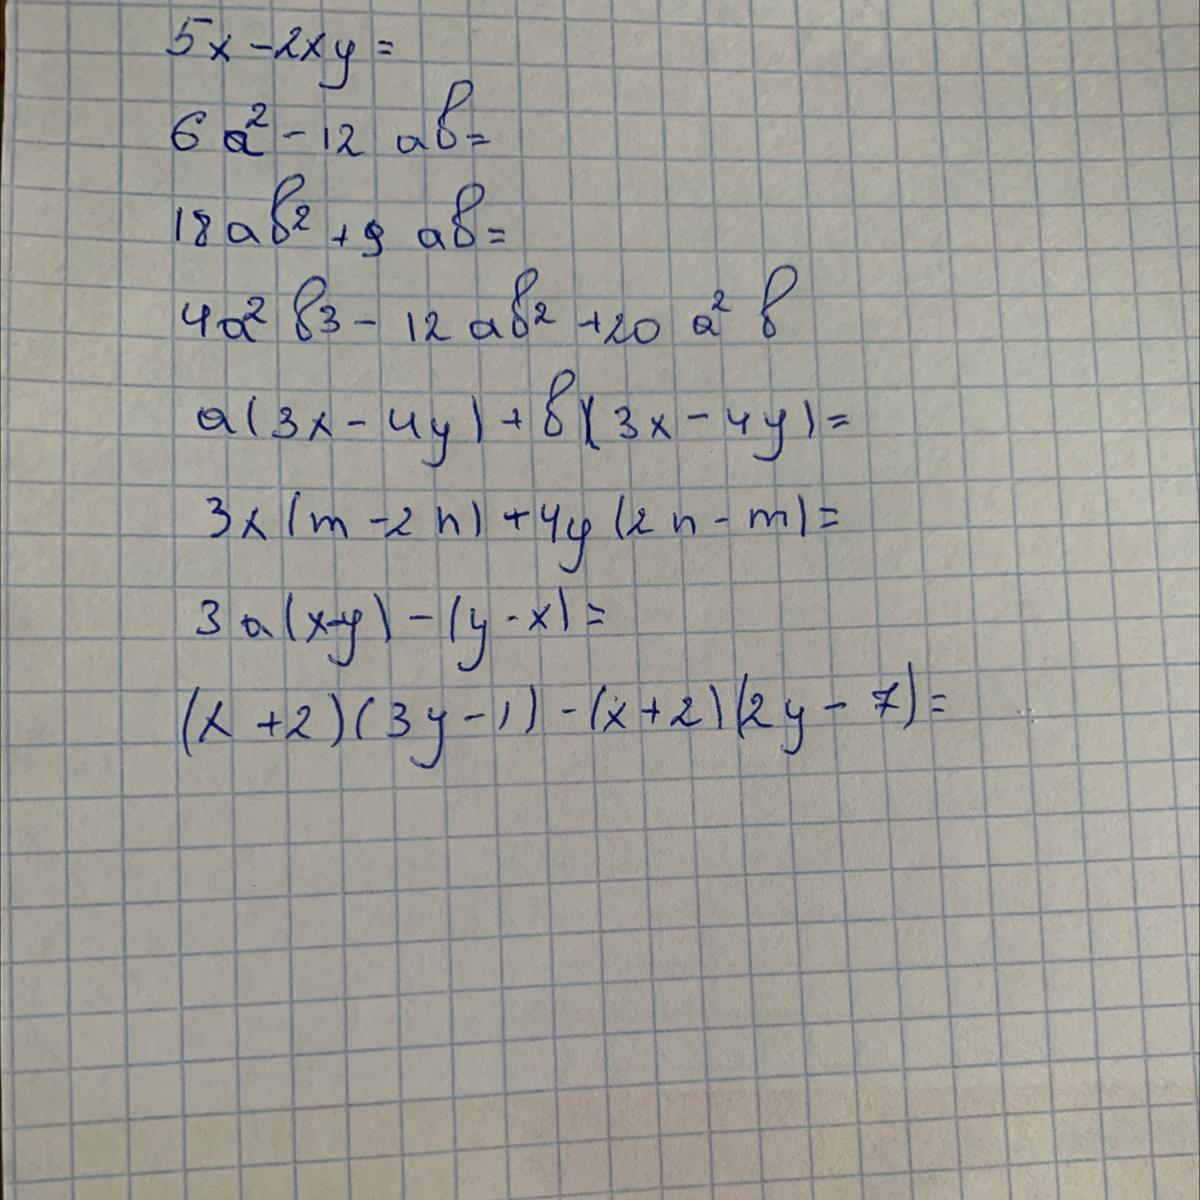 5x-2xy=
6a²-12 ab=
18ab²+9 ab=
4a²b³-12ab²+20 a²b
a(3x-4y)+b(3x-4y)=
3x(m-2n)+4y(2n-m)=
3a(x-y)-(y-x)=
(x+2)(3y-1)-(x+2)(2y-7)=